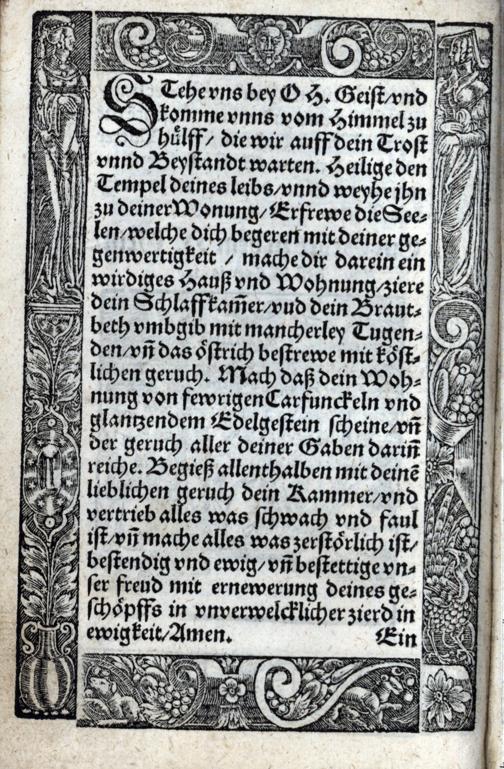 STehe vns bey O H. Geist/vnd
komme vnns vom Himmel zu
huͤlff / die wir auff dein Trost
vnnd Beystandt warten. Heilige den
Tempel deines leibs/vnnd weyhe jhn
zu deiner Wonung/Erfrewe die See⸗
len/welche dich begeren mit deiner ge⸗
genwertigkeit / mache dir darein ein
wirdiges Hauß vnd Wohnung/ziere
dein Schlaffkam̃er/vud dein Braut⸗
beth vmbgib mit mancherley Tugen⸗
den/vñ das oͤstrich bestrewe mit koͤst⸗
lichen geruch. Mach daß dein Woh⸗
nung von fewrigen Carfunckeln vnd
glantzendem Edelgestein scheine/vñ
der geruch aller deiner Gaben darin̄
reiche. Begieß allenthalben mit deinē
lieblichen geruch dein Kammer/vnd
vertrieb alles was schwach vnd faul
ist/vñ mache alles was zerstoͤrlich ist/
bestendig vnd ewig/vñ bestettige vn⸗
ser freud mit ernewerung deines ge⸗
schoͤpffs in vnverwelcklicher zierd in
ewigkeit/Amen. Ein